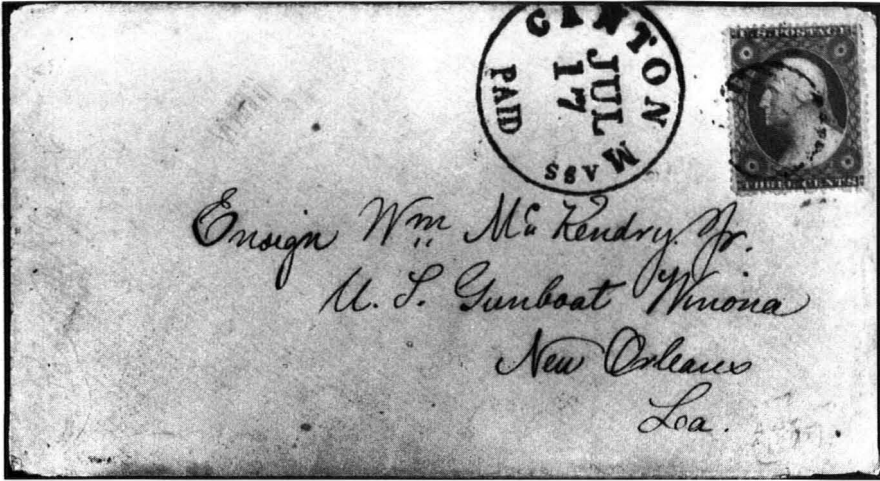 CANTON MASS
JUL
17
PAID
U.S. POSTAGE
THREE CENTS
Ensign Wm McKendry. Jr.
U. S. Gunboat Winona
New Orleans
La.